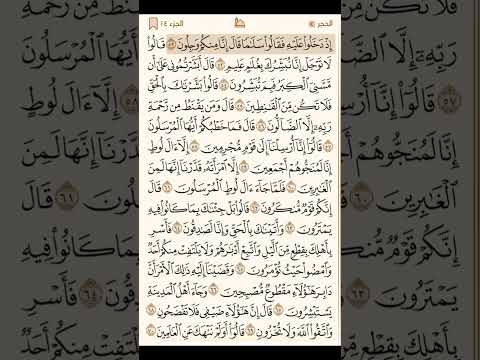 الحجر الجزء ١٤
إِذْ دَخَلُوا۟ عَلَيْهِ فَقَالُوا۟ سَلَٰمًا قَالَ إِنَّا مِنكُمْ وَجِلُونَ ٥٢ قَالُوا۟
لَا تَوْجَلْ إِنَّا نُبَشِّرُكَ بِغُلَٰمٍ عَلِيمٍ ٥٣ قَالَ أَبَشَّرْتُمُونِى عَلَىٰٓ أَن
مَّسَّنِىَ ٱلْكِبَرُ فَبِمَ تُبَشِّرُونَ ٥٤ قَالُوا۟ بَشَّرْنَٰكَ بِٱلْحَقِّ
فَلَا تَكُن مِّنَ ٱلْقَٰنِطِينَ ٥٥ قَالَ وَمَن يَقْنَطُ مِن رَّحْمَةِ
رَبِّهِۦٓ إِلَّا ٱلضَّآلُّونَ ٥٦ قَالَ فَمَا خَطْبُكُمْ أَيُّهَا ٱلْمُرْسَلُونَ
٥٧ قَالُوٓا۟ إِنَّآ أُرْسِلْنَآ إِلَىٰ قَوْمٍ مُّجْرِمِينَ ٥٨ إِلَّآ ءَالَ لُوطٍ
إِنَّا لَمُنَجُّوهُمْ أَجْمَعِينَ ٥٩ إِلَّا ٱمْرَأَتَهُۥ قَدَّرْنَآ إِنَّهَا لَمِنَ
ٱلْغَٰبِرِينَ ٦٠ فَلَمَّا جَآءَ ءَالَ لُوطٍ ٱلْمُرْسَلُونَ ٦١ قَالَ
إِنَّكُمْ قَوْمٌ مُّنكَرُونَ ٦٢ قَالُوا۟ بَلْ جِئْنَٰكَ بِمَا كَانُوا۟ فِيهِ
يَمْتَرُونَ ٦٣ وَأَتَيْنَٰكَ بِٱلْحَقِّ وَإِنَّا لَصَٰدِقُونَ ٦٤ فَأَسْرِ
بِأَهْلِكَ بِقِطْعٍ مِّنَ ٱلَّيْلِ وَٱتَّبِعْ أَدْبَٰرَهُمْ وَلَا يَلْتَفِتْ مِنكُمْ أَحَدٌ
وَٱمْضُوا۟ حَيْثُ تُؤْمَرُونَ ٦٥ وَقَضَيْنَآ إِلَيْهِ ذَٰلِكَ ٱلْأَمْرَ أَنَّ
دَابِرَ هَٰٓؤُلَآءِ مَقْطُوعٌ مُّصْبِحِينَ ٦٦ وَجَآءَ أَهْلُ ٱلْمَدِينَةِ
يَسْتَبْشِرُونَ ٦٧ قَالَ إِنَّ هَٰٓؤُلَآءِ ضَيْفِى فَلَا تَفْضَحُونِ ٦٨
وَٱتَّقُوا۟ ٱللَّهَ وَلَا تُخْزُونِ ٦٩ قَالُوٓا۟ أَوَلَمْ نَنْهَكَ عَنِ ٱلْعَٰلَمِينَ ٧٠